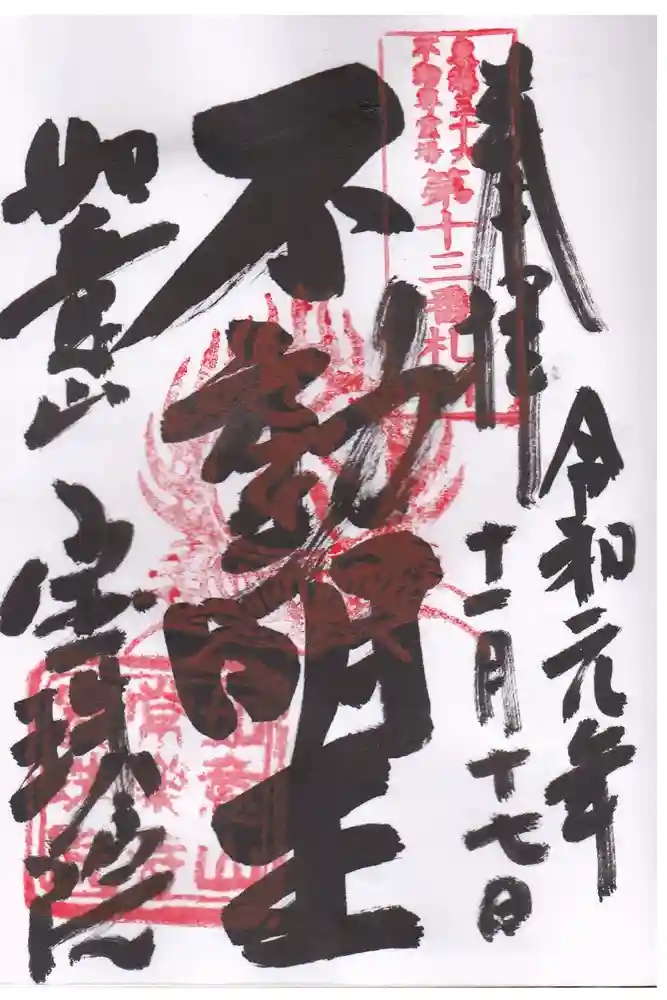 令和元年
十一月十七日
奉拝
東海三十六
不動尊霊場
第十三番札
不動明王
如意山 宝珠院